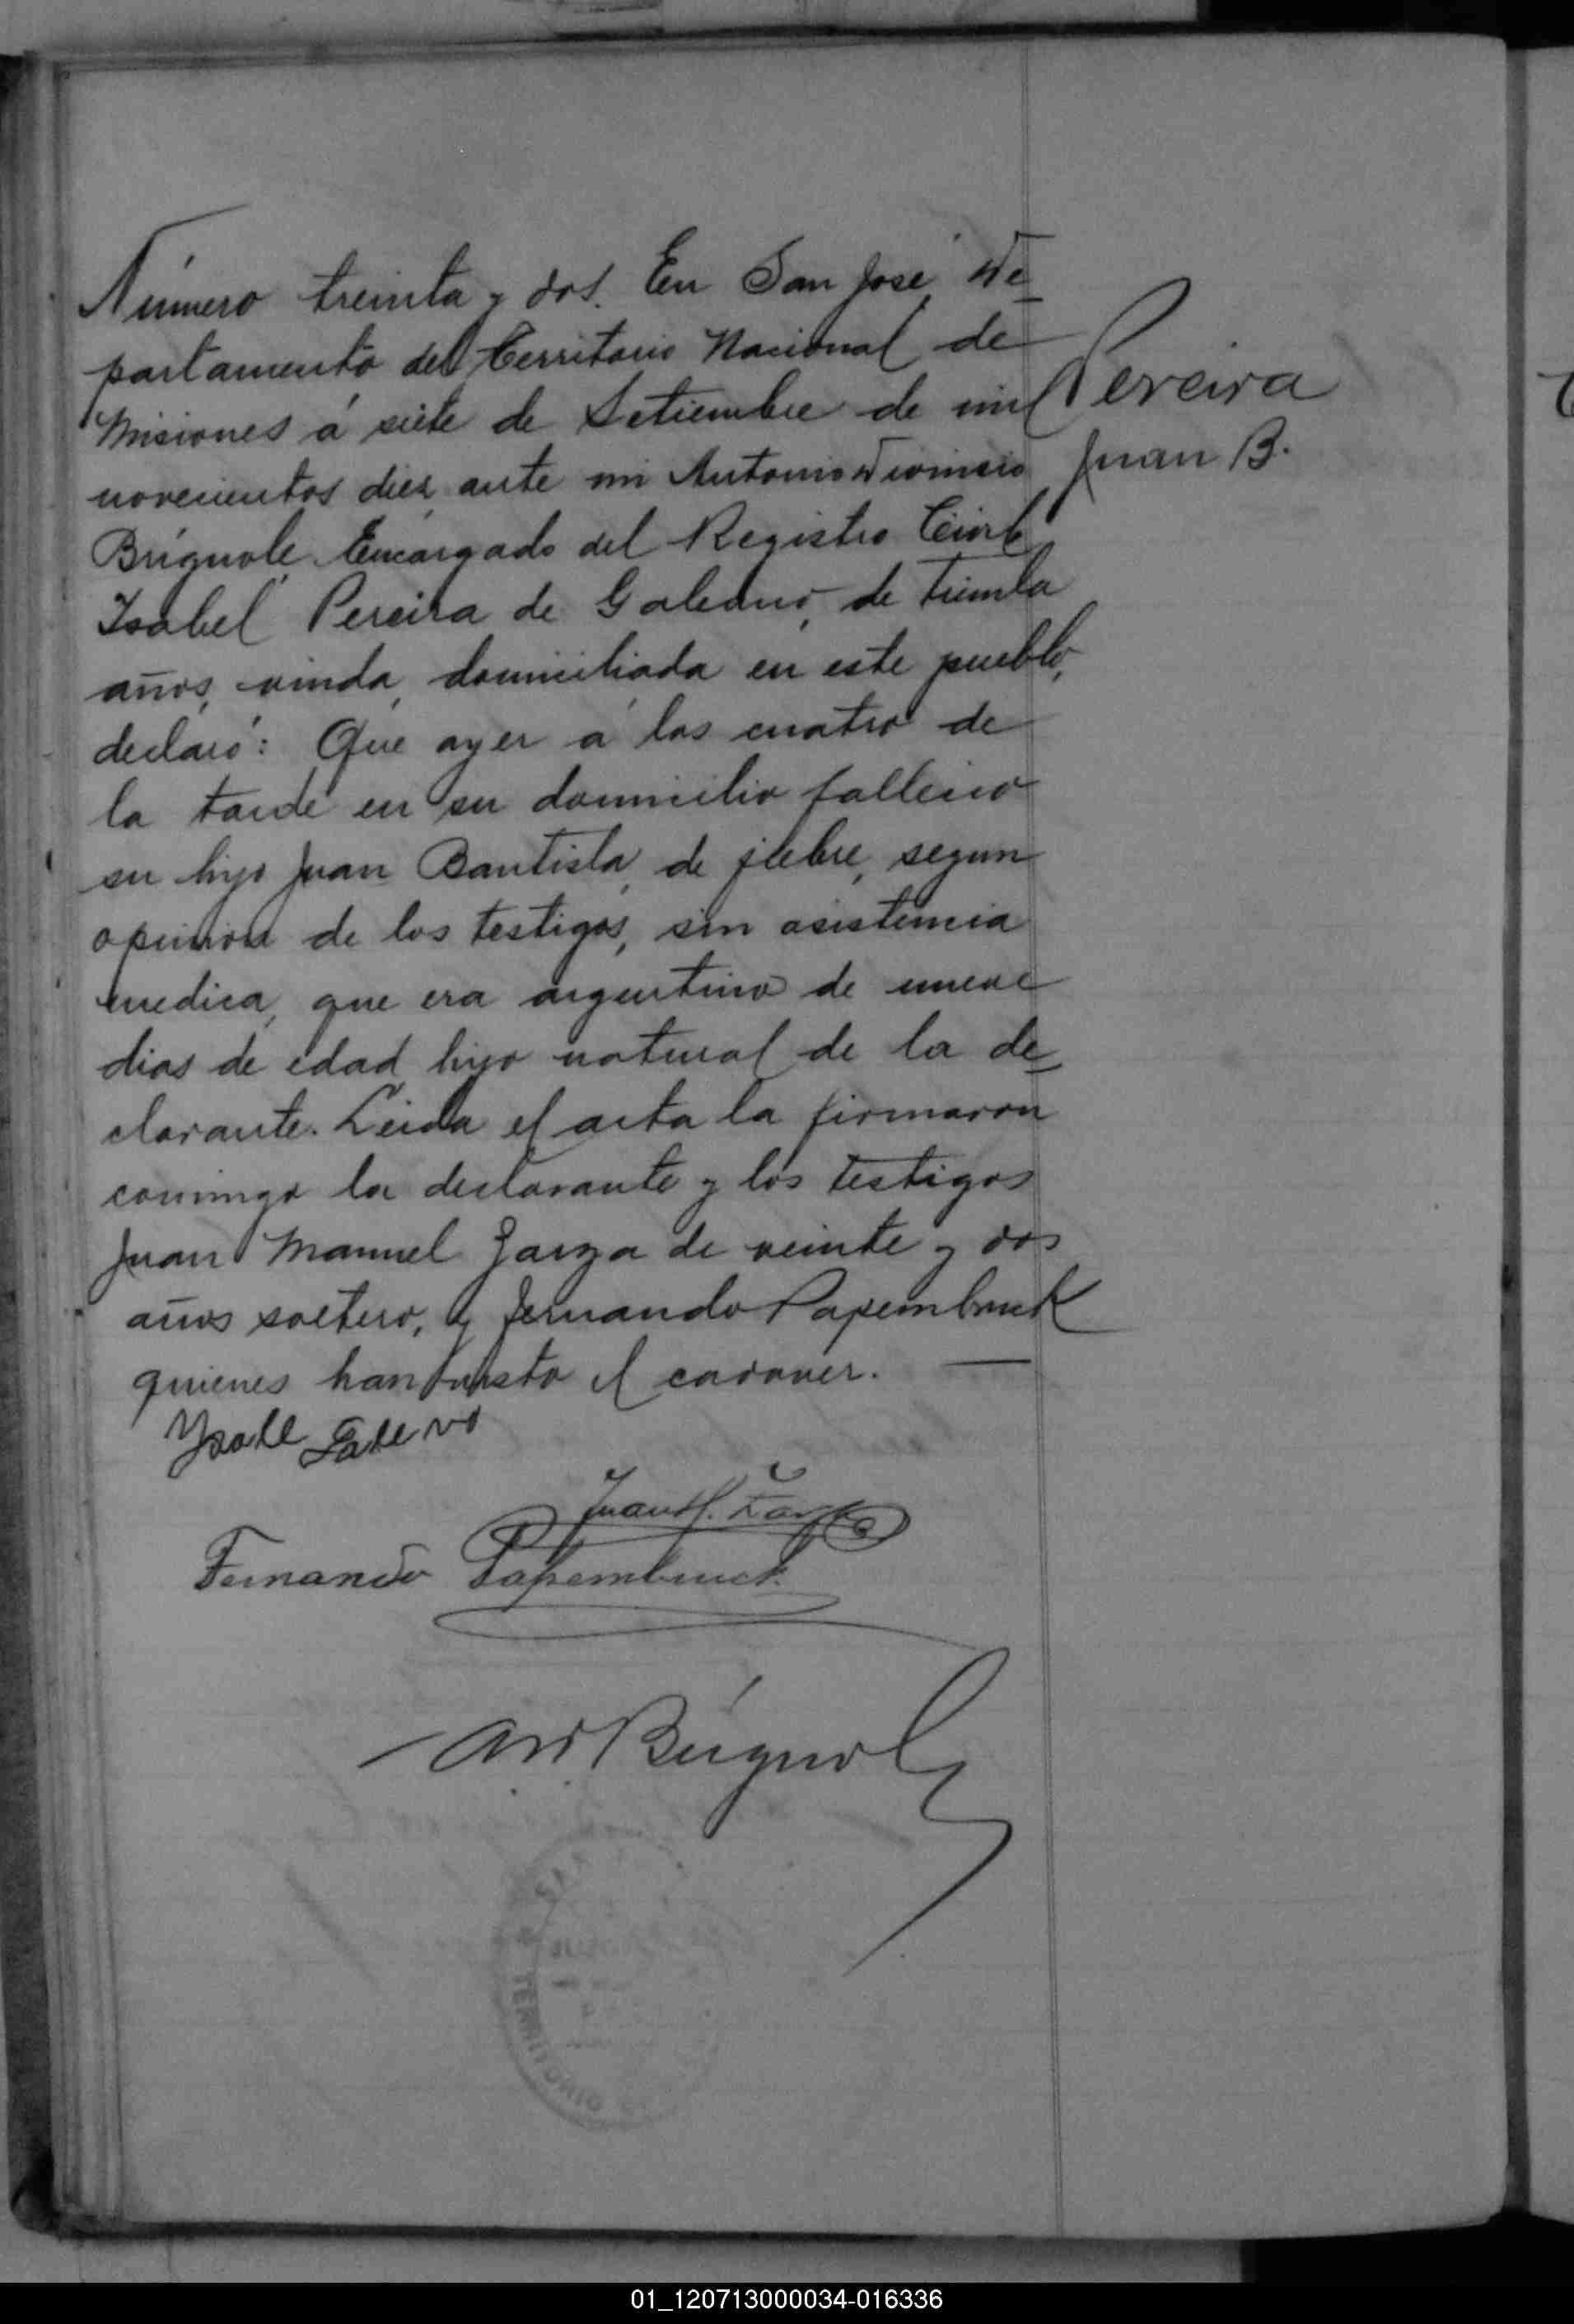 Número treinta y dos. En San José, De-
partamento del Territorio Nacional de
Misiones á siete de Setiembre de mil
novecientos diez, ante mi Antonio Dionisio
Brignole, Encargado del Registro Civil,
Isabel Pereira de Galeano, de treinta
años, viuda, domiciliada en este pueblo,
declaró: Que ayer á las cuatro de
la tarde en su domicilio fallecio
su hijo Juan Bautista, de fiebre, segun
opinion de los testigos, sin asistencia
medica, que era argentino de nueve
dias de edad, hijo natural de la de-
clarante. Leida el acta la firmaron
conmigo la declarante y los testigos
Juan Manuel Zarza de veinte y dos
años soltero, y Fernando Papembruck
quienes han visto el cadaver. —
Pereira
Juan B.
Juan M.
Fernando Papembruck
AD Brignole
SAN
TERRITORIO
01_120713000034-016336